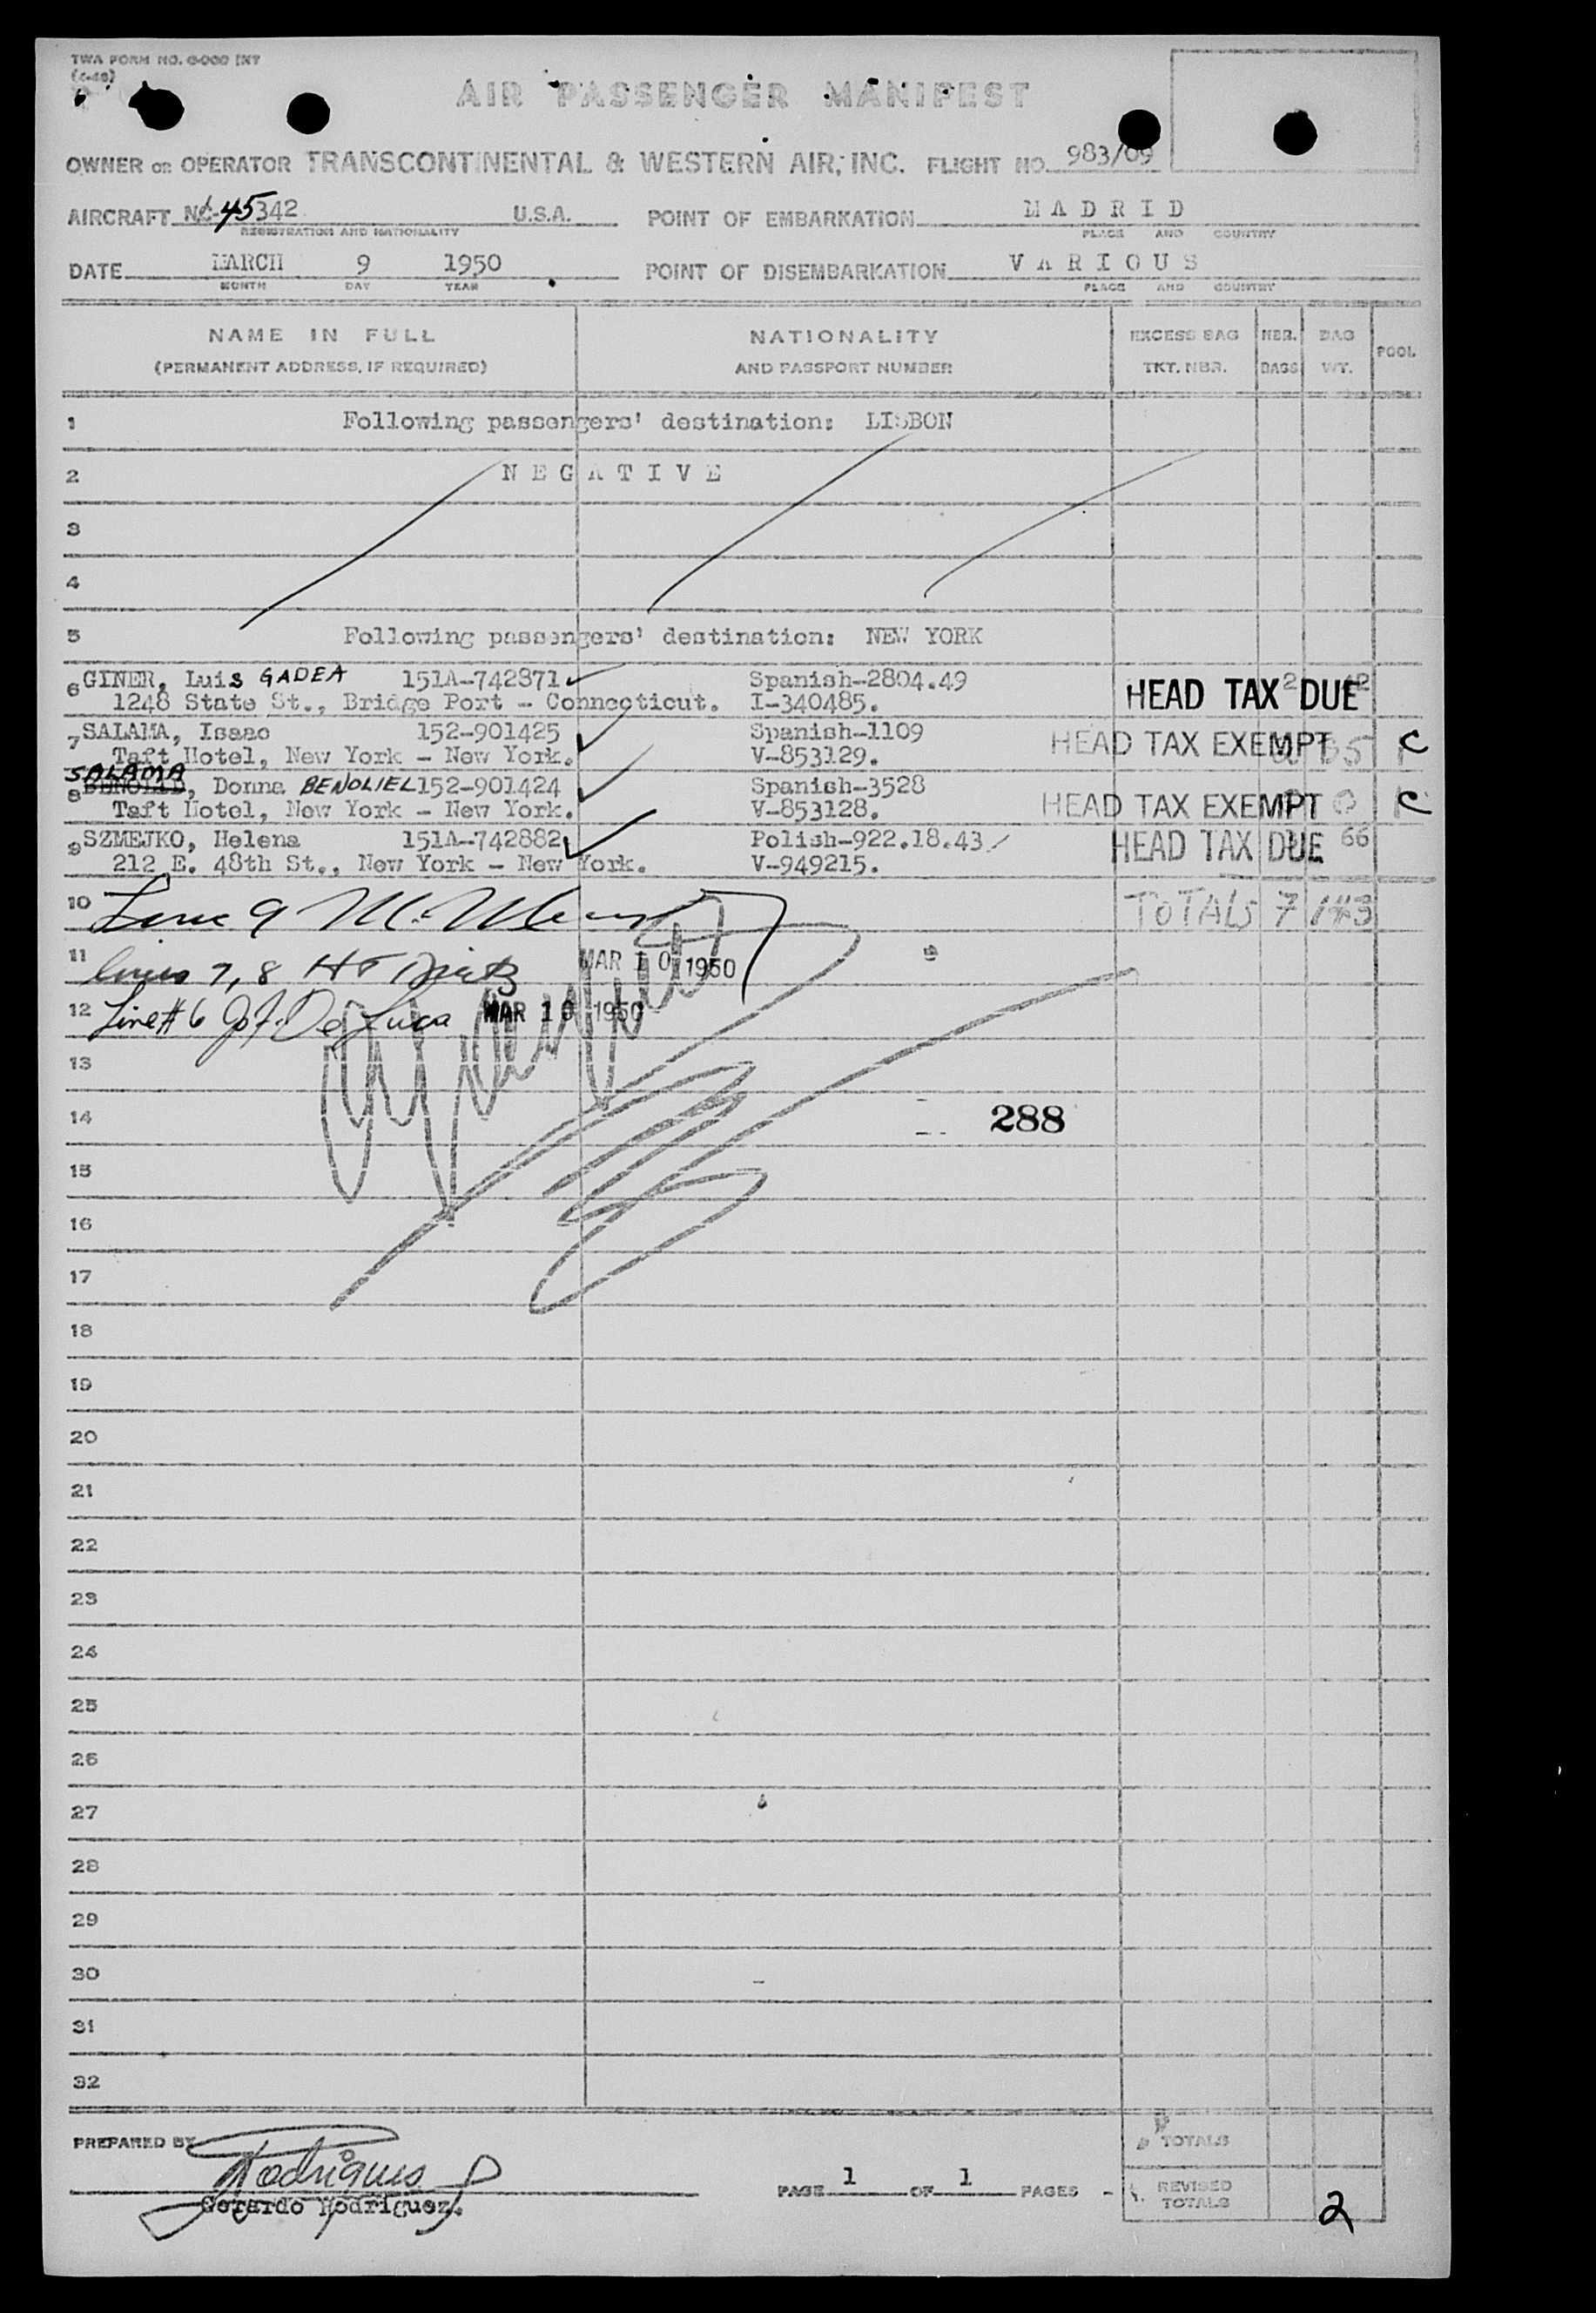 TWA FORM NO. 0-000 INT
(4-48)
AIR PASSENGER MANIFEST
OWNER OR OPERATOR TRANSCONTINENTAL & WESTERN AIR, INC. FLIGHT NO. 983/09
AIRCRAFT NC-45342 U.S.A. POINT OF EMBARKATION MADRID
REGISTRATION AND NATIONALITY PLACE AND COUNTRY
DATE MARCH 9 1950 POINT OF DISEMBARKATION VARIOUS
MONTH DAY YEAR PLACE AND COUNTRY
NAME IN FULL NATIONALITY EXCESS BAG NBR. BAG POOL
(PERMANENT ADDRESS, IF REQUIRED) AND PASSPORT NUMBER TKT. NBR. BAGS WT.
1 Following passengers' destination: LISBON
2 NEGATIVE
3
4
5 Following passengers' destination: NEW YORK
6 GINER, Luis GADEA 151A-742871 Spanish-2804.49 HEAD TAX DUE 2 42
1248 State St., Bridge Port - Connecticut. I-340485.
7 SALAMA, Isaac 152-901425 Spanish-1109 HEAD TAX EXEMPT 35 C
Taft Hotel, New York - New York. V-853129.
SALAMA
8 BENOLIEL, Donna BENOLIEL 152-901424 Spanish-3528 HEAD TAX EXEMPT C
Taft Hotel, New York - New York. V-853128.
9 SZMEJKO, Helena 151A-742882 Polish-922.18.43 HEAD TAX DUE 66
212 E. 48th St., New York - New York. V-949215.
10 Line 9 TOTALS 7 143
11 Lines 7, 8 MAR 10 1950
12 Line # 6 J.F. De Luca MAR 10 1950
13
14 288
15
16
17
18
19
20
21
22
23
24
25
26
27
28
29
30
31
32
PREPARED BY Rodriguez TOTALS
PAGE 1 OF 1 PAGES REVISED TOTALS 2
Gerardo Rodriguez.